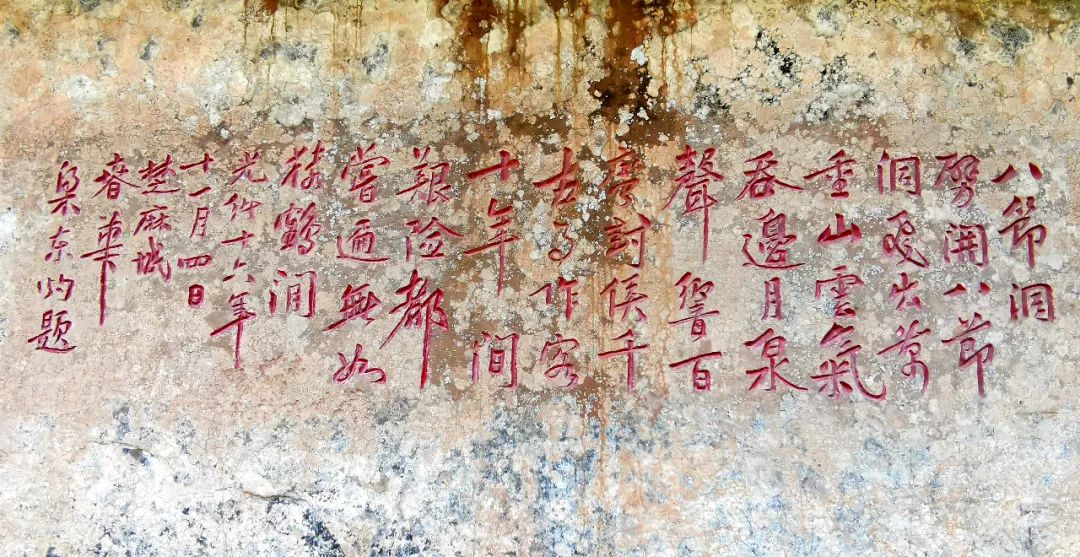 八節洞
劈開八節
洞出萬
重山雲氣
吞邊月泉
聲響百
討侯千
古作客
十年間
艱险都
嘗遍無如
鶴澗
光绪十六年
十一月四日
楚麻城
春華
东灼题